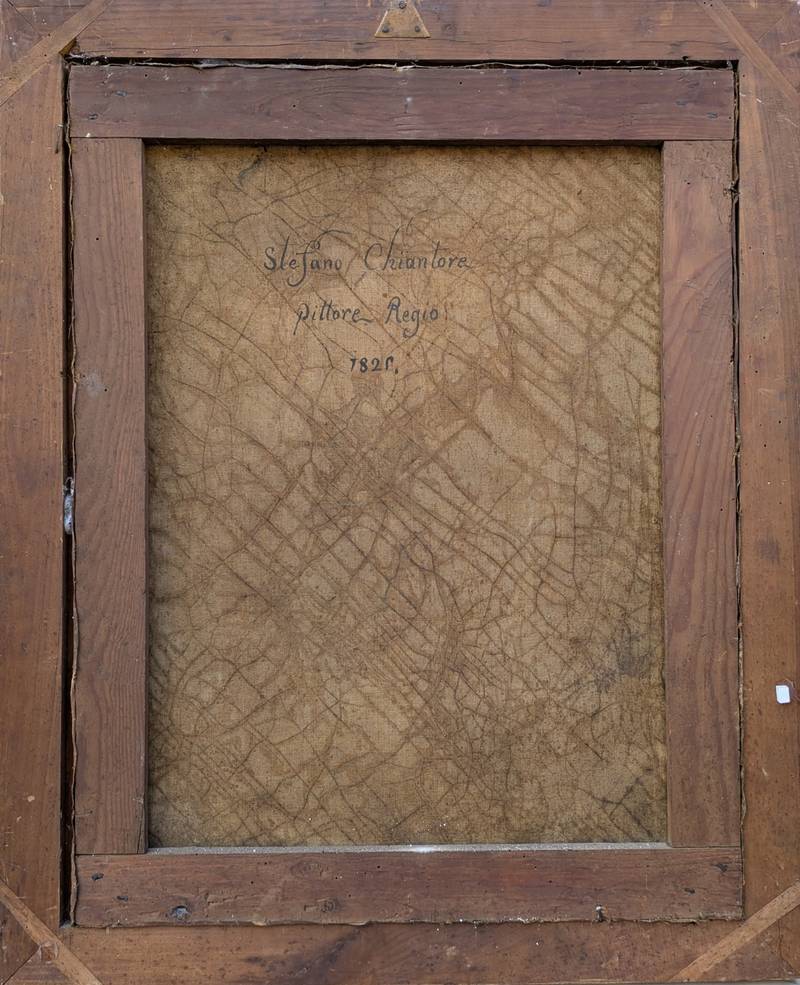 Stefano Chiantore
pittore Regio
1825.